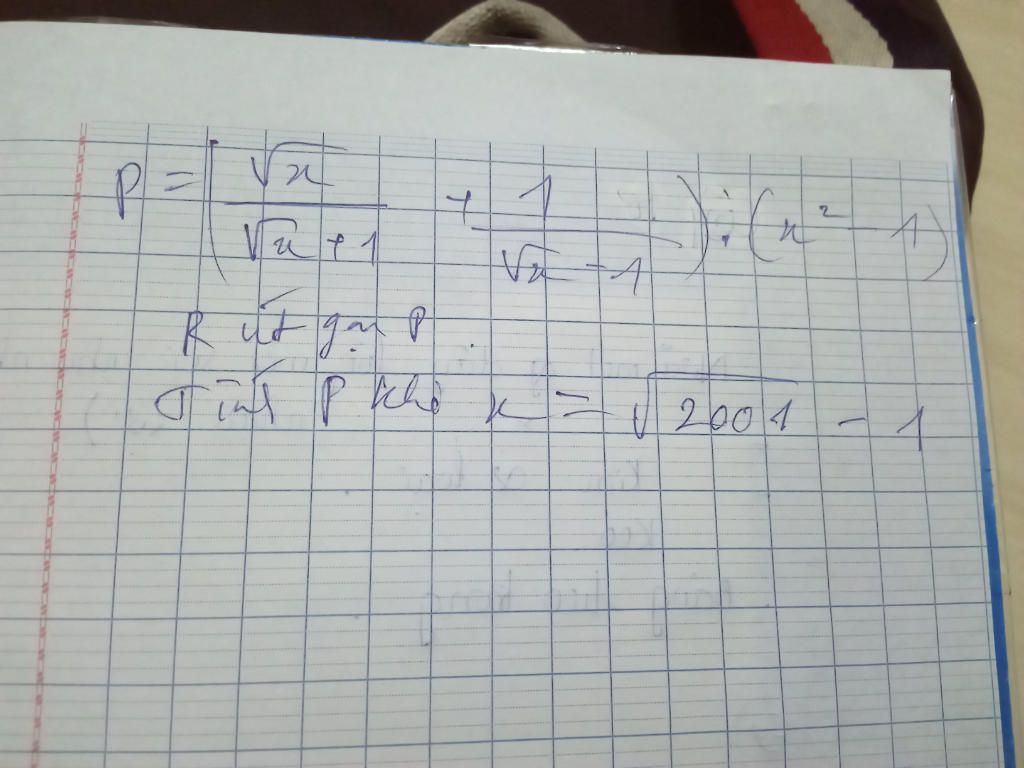 P = ( √x / (√x + 1) + 1 / (√x - 1) ) : (x² - 1)
Rút gọn P
Tính P khi x = √2001 - 1